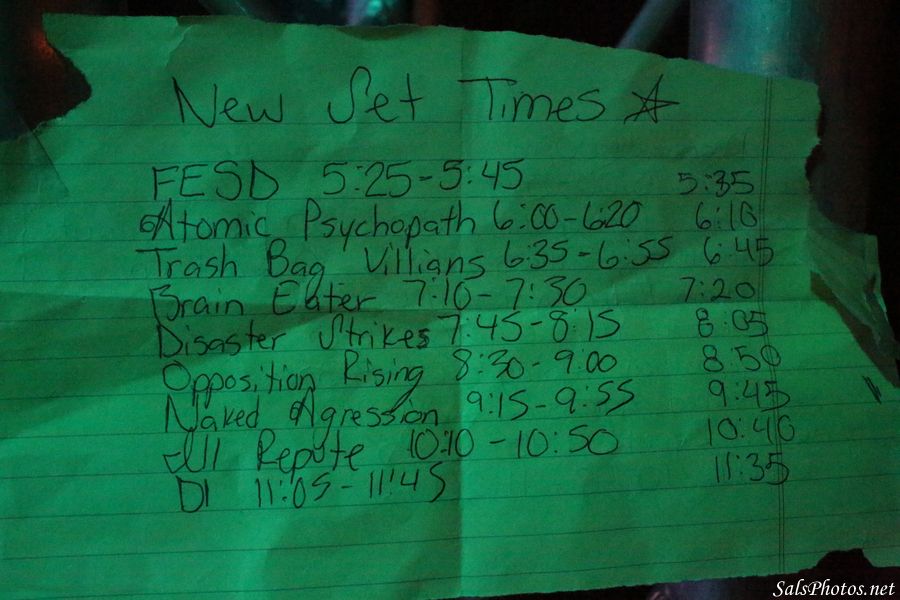 New Set Times
FESD 5:25-5:45 5:35
Atomic Psychopath 6:00-6:20 6:10
Trash Bag Villians 6:35-6:55 6:45
Brain Eater 7:10-7:30 7:20
Disaster Strikes 7:45-8:15 8:05
Opposition Rising 8:30-9:00 8:50
Naked Agression 9:15-9:55 9:45
Ill Repute 10:10-10:50 10:40
DI 11:05-11:45 11:35
SalsPhotos.net